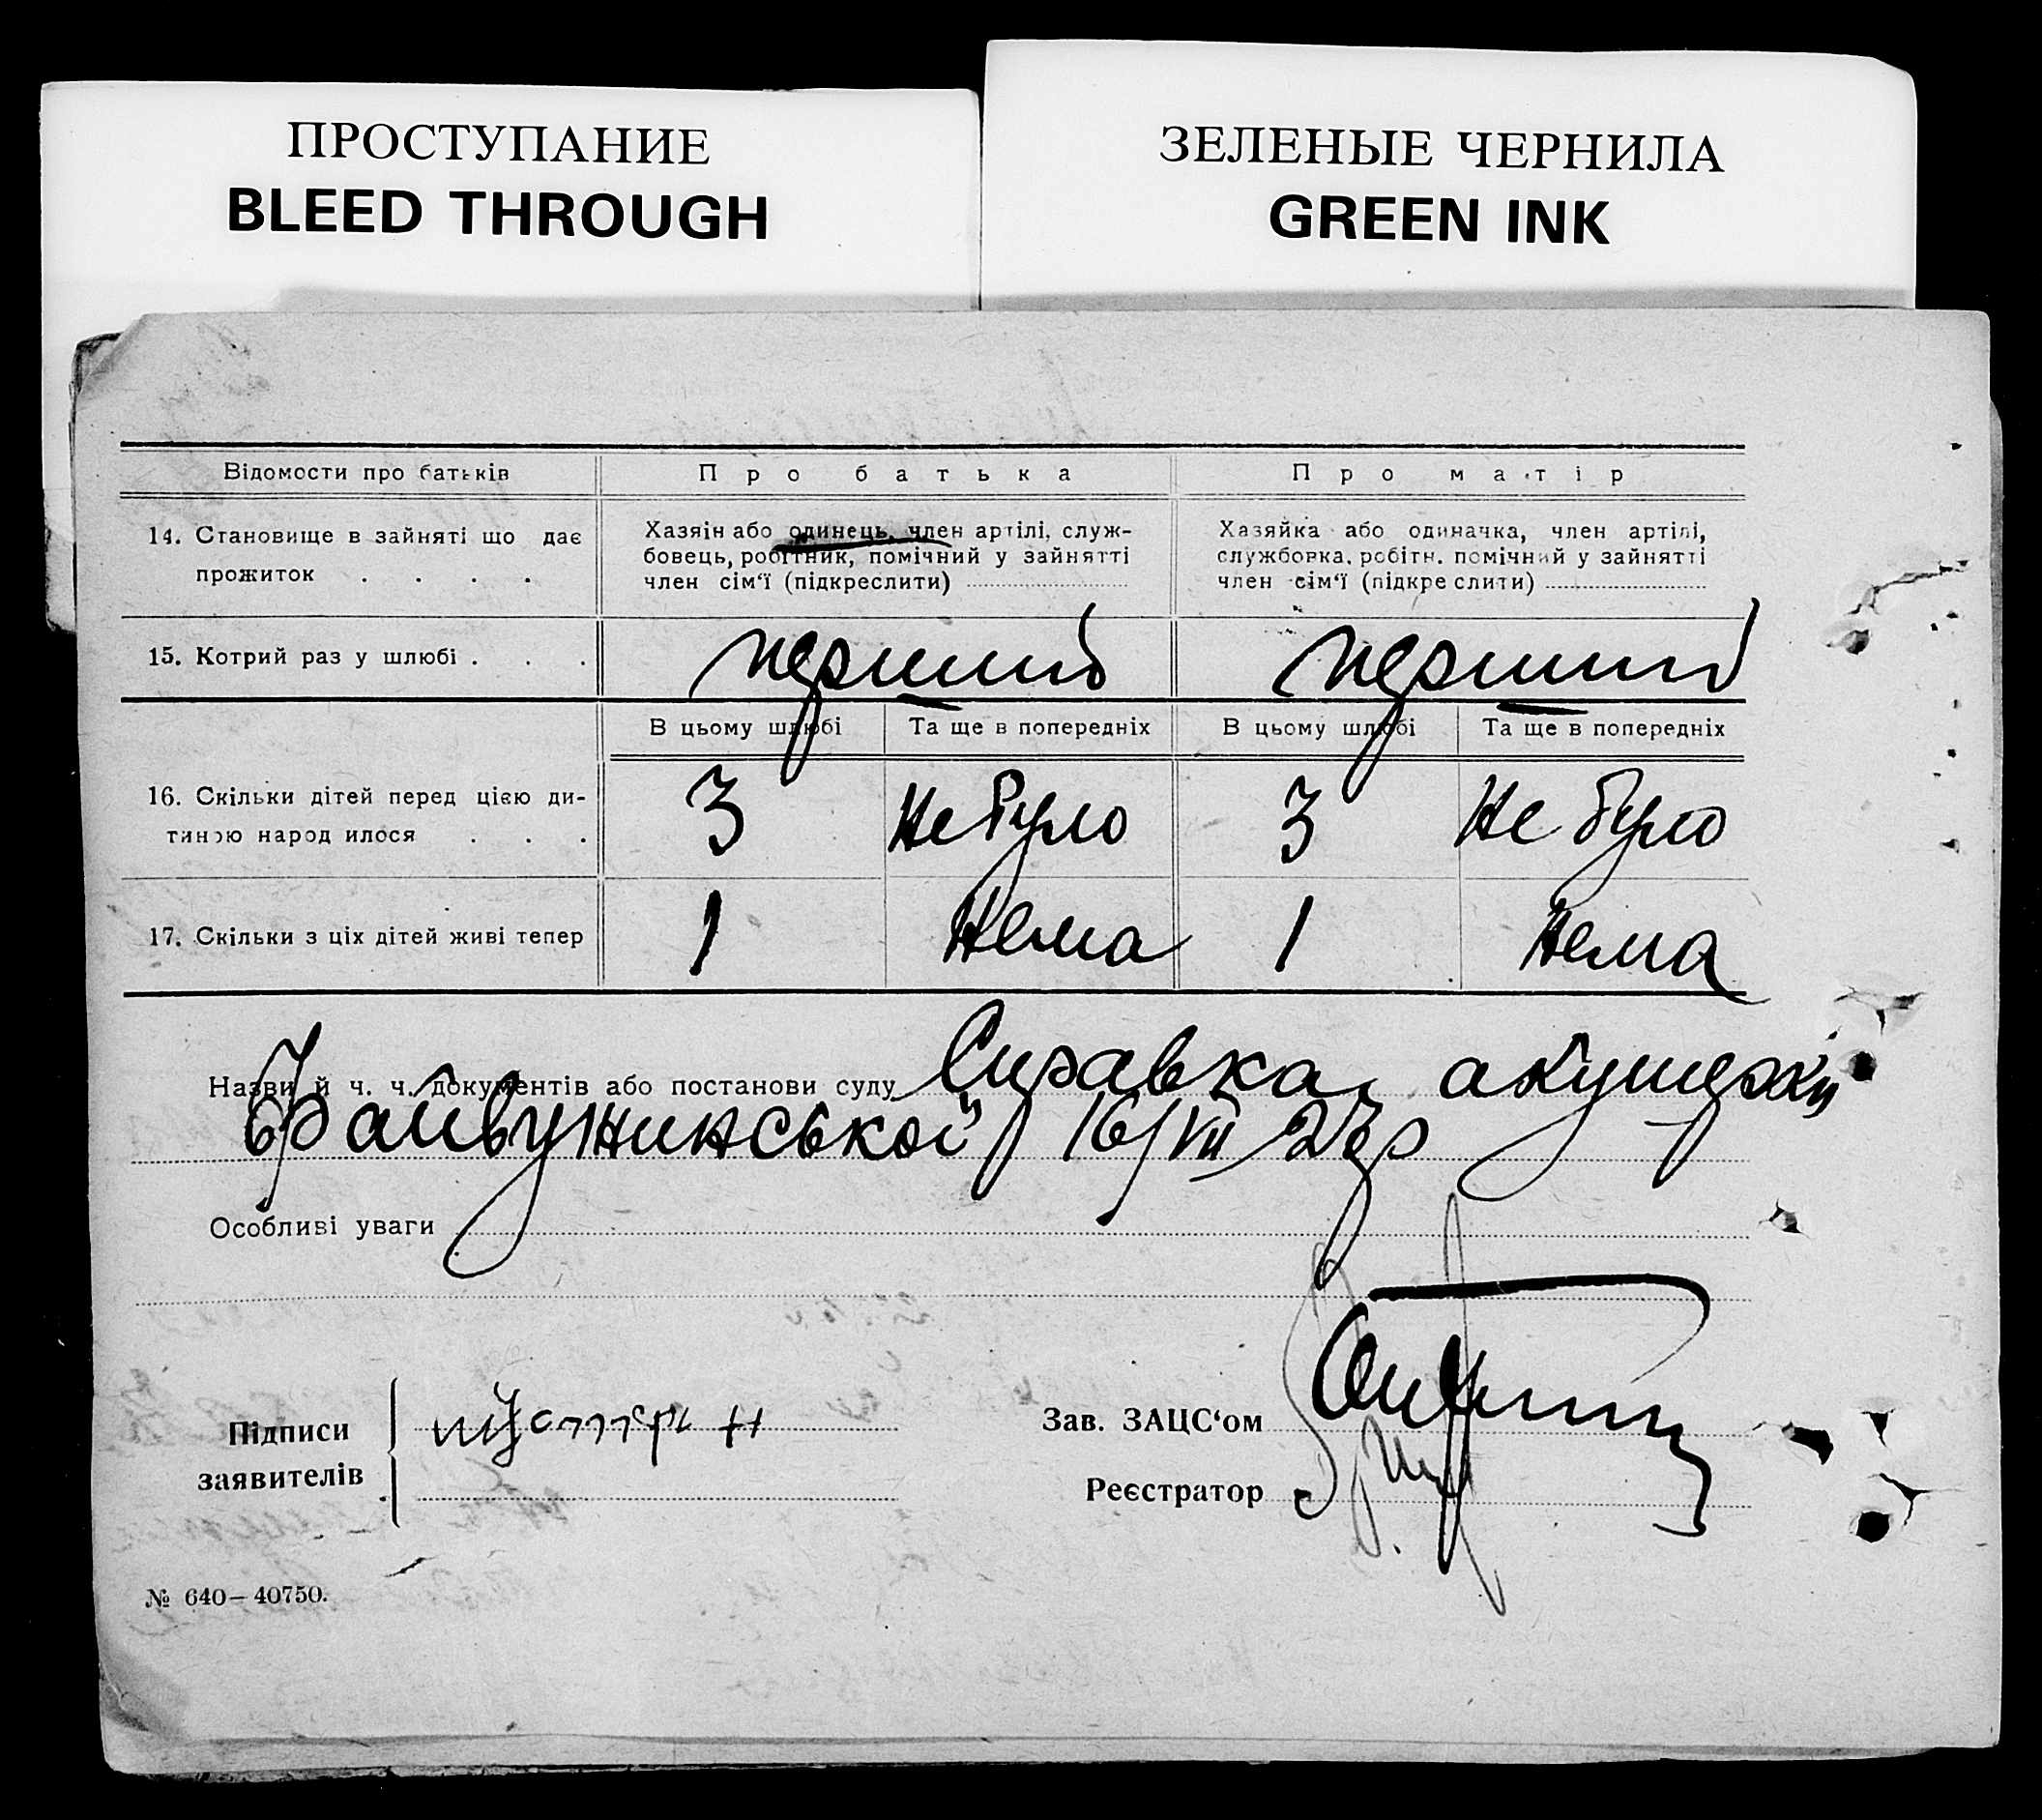 ПРОСТУПАНИЕ
BLEED THROUGH
ЗЕЛЕНЫЕ ЧЕРНИЛА
GREEN INK
Відомости про батьків
Про батька
Про матір
14. Становище в зайняті що дає
прожиток . . . .
Хазяін або одинець, член артілі, служ-
бовець, робітник, помічний у зайнятті
член сім‘ї (підкреслити)
Хазяйка або одиначка, член артілі,
службовка, робітн. помічний у зайнятті
член сім‘ї (підкреслити)
15. Котрий раз у шлюбі . . .
перший
перший
В цьому шлюбі
Та ще в попередніх
В цьому шлюбі
Та ще в попередніх
16. Скільки дітей перед цією ди-
тиною народилося . . .
3
Не було
3
Не було
17. Скільки з ціх дітей живі тепер
1
Нема
1
Нема
Назви й ч. ч. документів або постанови суду Справка акушерки
16/VII 27р
Особливі уваги
Підписи
заявителів
Зав. ЗАЦС‘ом
Реєстратор
№ 640—40750.